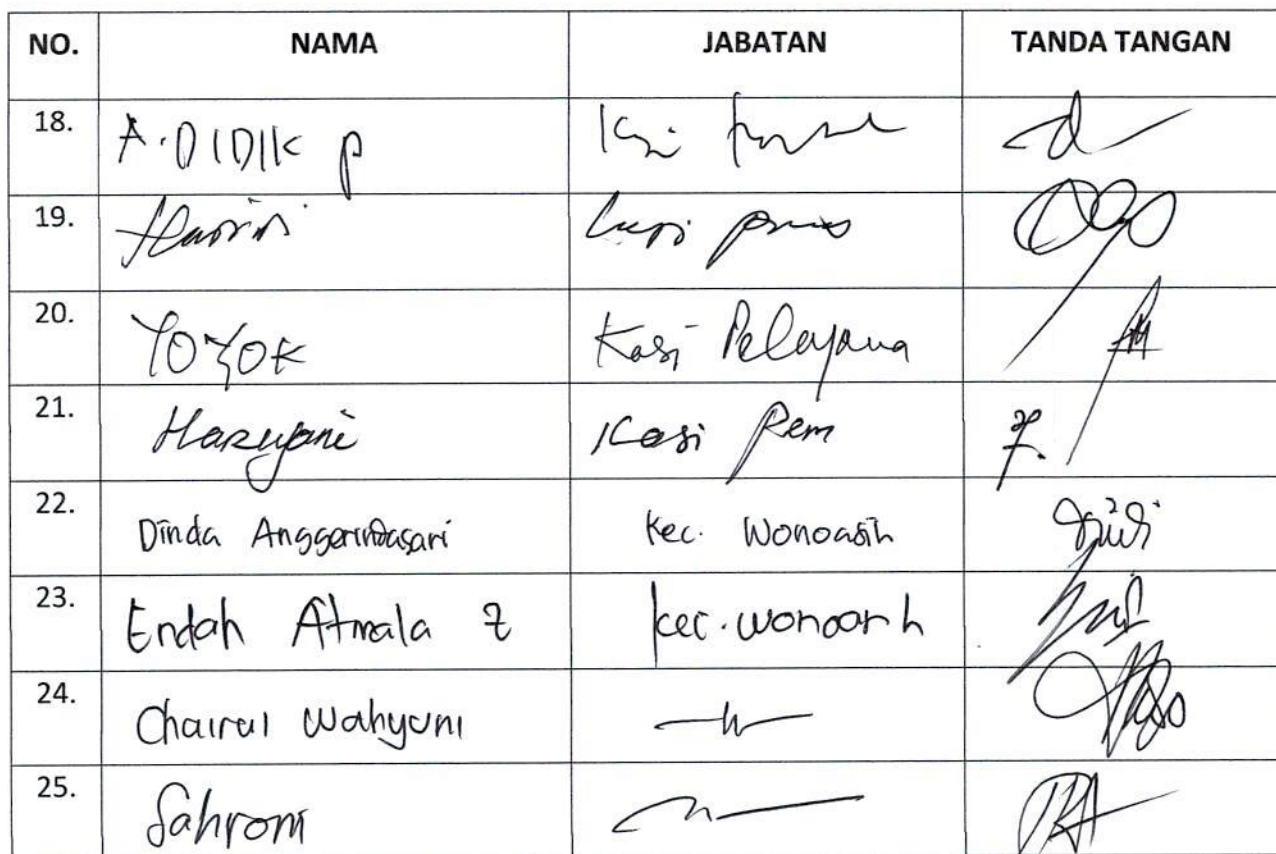 NO. NAMA JABATAN TANDA TANGAN
18. A. DIDIK P
19. Hariri
20. YOYOK Kasi Pelayana
21. Haryani Kasi Pem
22. Dinda Anggerindasari Kec. Wonoasih
23. Endah Atmala Z Kec. Wonoasih
24. Chairul Wahyuni
25. Sahroni